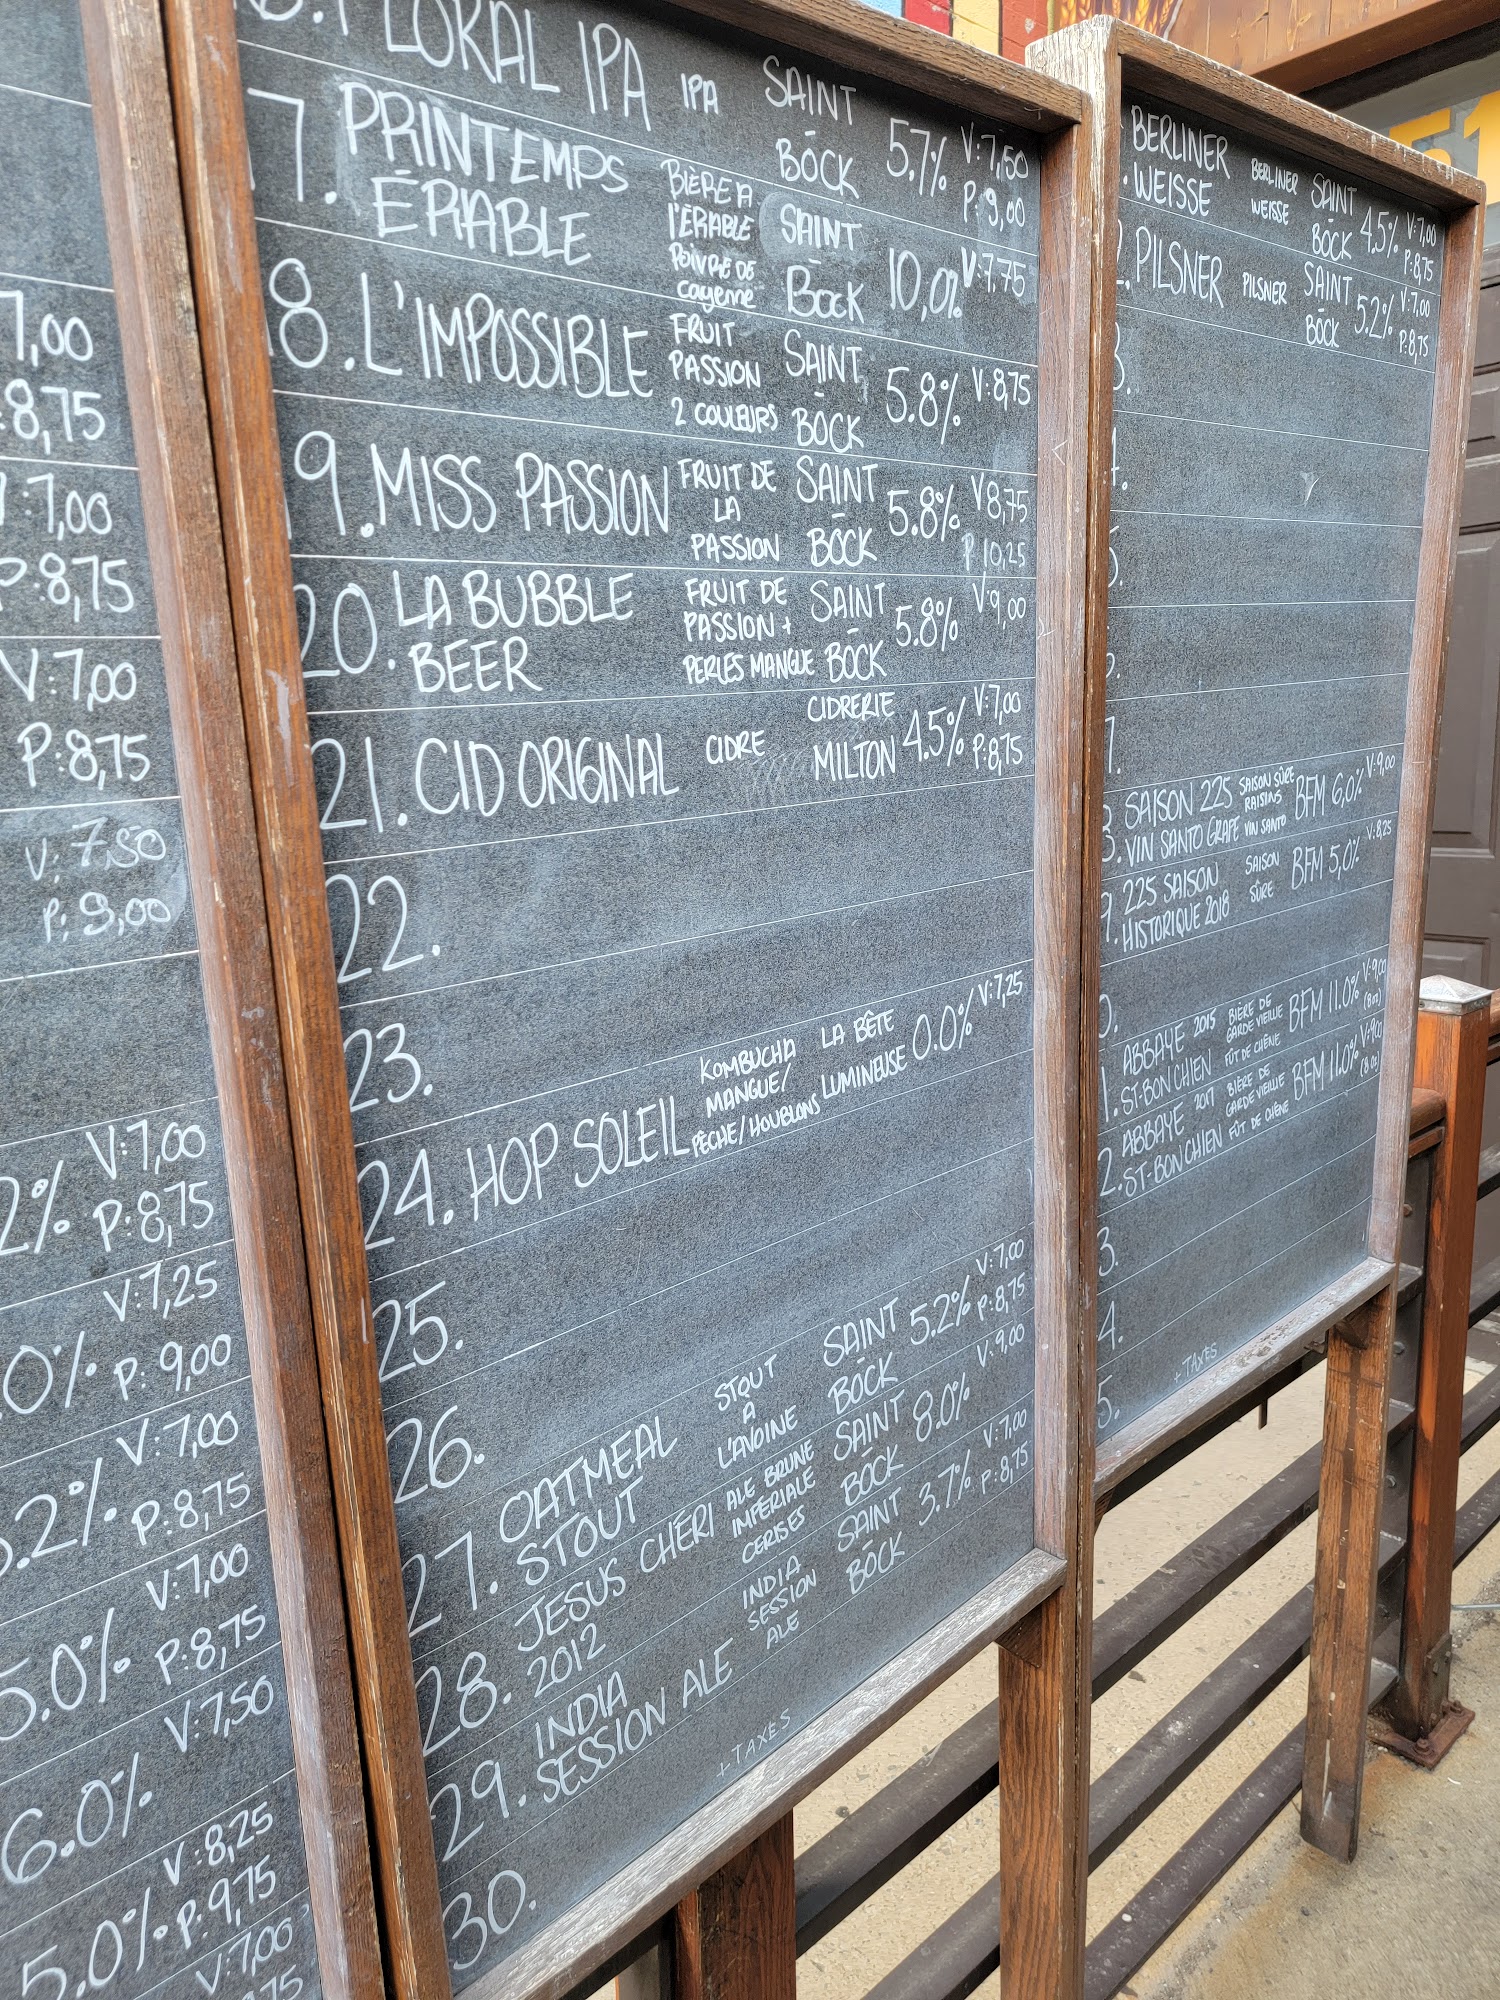 7,00
8,75
7,00
P:8,75
V:7,00
P:8,75
V:7,50
P:9,00
2% V:7,00
P:8,75
V:7,25
0% P:9,00
V:7,00
.2% P:8,75
V:7,00
5.0% P:8,75
V:7,50
6.0%
V:8,25
5.0% P:9,75
V:7,00
75
LOKAL IPA IPA SAINT BÖCK 5.7% V:7,50 P:9,00
7. PRINTEMPS ÉRIABLE BIÈRE A L'ÉRABLE POIVRE DE cayenne SAINT BOCK 10,0% V:7.75
18. L'IMPOSSIBLE FRUIT PASSION 2 COULEURS SAINT BÖCK 5.8% V:8,75
19. MISS PASSION FRUIT DE LA PASSION SAINT BÖCK 5.8% V8,75 P 10,25
20. LA BUBBLE BEER FRUIT DE PASSION + PERLES MANGUE SAINT BÖCK 5.8% V:9,00
21. CID ORIGINAL CIDRE CIDRERIE MILTON 4.5% V:7,00 P:8,75
22.
23.
24. HOP SOLEIL KOMBUCHA MANGUE/ PÊCHE/HOUBLONS LA BÊTE LUMINEUSE 0.0% V:7,25
25.
26.
27. OATMEAL STOUT STOUT A L'AVOINE SAINT BÖCK 5.2% V:7,00 P:8,75
28. JESUS CHÉRI 2012 ALE BRUNE IMPÉRIALE CERISES SAINT BÖCK 8.0% V:9,00
29. INDIA SESSION ALE INDIA SESSION ALE SAINT BÖCK 3.7% V:7,00 P:8,75
30.
+ TAXES
. BERLINER WEISSE BERLINER WEISSE SAINT BÖCK 4.5% V:7,00 P:8,75
. PILSNER PILSNER SAINT BÖCK 5.2% V:7,00 P:8,75
3.
4.
5.
.
7.
8. SAISON 225 VIN SANTO GRAPE SAISON SÛRE RAISINS VIN SANTO BFM 6,0% V:9,00
9. 225 SAISON HISTORIQUE 2018 SAISON SÛRE BFM 5,0% V:8,25
0.
1. ABBAYE 2015 ST-BON CHIEN BIÈRE DE GARDE VIEILLE FÛT DE CHÊNE BFM 11.0% V:9,00 (8 oz)
2. ABBAYE 2017 ST-BON CHIEN BIÈRE DE GARDE VIEILLE FÛT DE CHÊNE BFM 11.0% V:9,00 (8 oz)
3.
4.
5.
+ TAXES
51